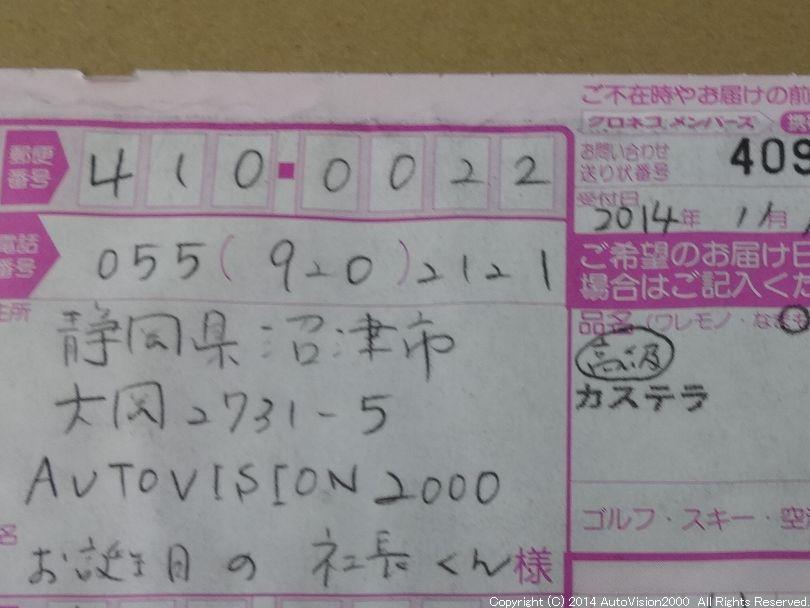 ご不在時やお届けの前
クロネコメンバーズ
郵便番号
410-0022
お問い合わせ
送り状番号
409
受付日
2014年 11月
電話番号
055(920)2121
ご希望のお届け日
場合はご記入くだ
住所
静岡県沼津市
大岡2731-5
AUTOVISION2000
品名(ワレモノ・なまも
高級
カステラ
ゴルフ・スキー・空
名
お誕生日の 社長くん様
Copyright (C) 2014 AutoVision2000 All Rights Reserved